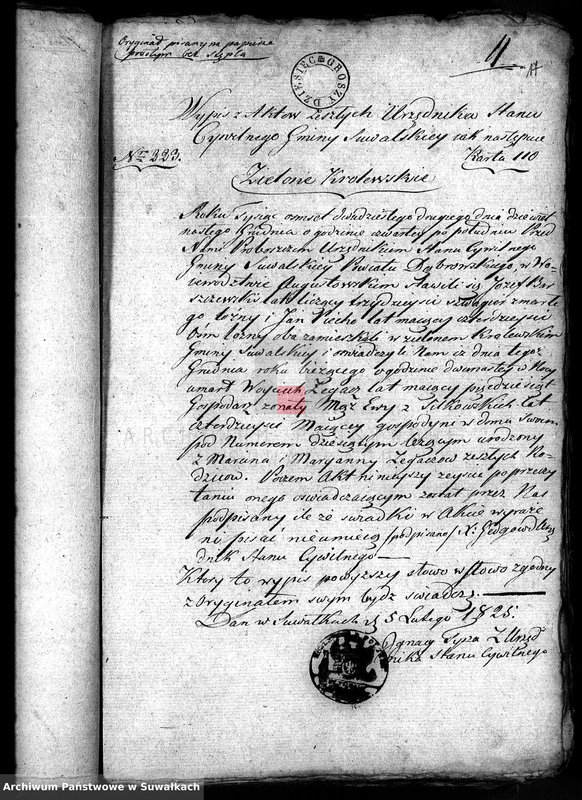 Oryginał pisany na papierze
prostym bez stępla
4
DZIESIĘC GROSZY
Wypis z Aktow zeszłych Urzędnika Stanu
Cywilnego Gminy Suwalskiey iak następuie
Nro 223.
Karta 110
Zielone Krolewskie
Roku Tysiąc ośmset dwudziestego drugiego dnia dziewięt
nastego Grudnia o godzinie czwartey po południu Przed
Nami Proboszczem Urzędnikiem Stanu Cywilnego
Gminy Suwalskiey Powiatu Dąbrowskiego, w Wo
iewodztwie Augustowskim stawili się Jozef Kar
szczewski lat liczący trzydzieści szwagier zmarłe
go tożny i Jan Ciecho lat maiący czterdzieści
ośm tożny oba zamieszkali w zielonem Krolewskim
Gminy Suwalskiey i oświadczyli Nam iż dnia tegoż
Grudnia roku bieżącego o godzinie dwunastey w Nocy
umarł Woyciech Zegacz lat maiący pięćdziesiąt
Gospodarz żonaty Mąż Ewy z Sitkowskich lat
czterdzieści Maiącey gospodyni w domu swoim
pod Numerem dziesiątym leżącym urodzony
z Marcina i Maryanny Zegaczow zeszłych Ro
dzicow. Poczem Akt ninieyszy zeyścia po przeczy
taniu onego oświadczaiącym został przez Nas
podpisany ile że świadki w Akcie wyraże
ni pisać nieumieią /podpisano/ X: Giedgowd Urzę
dnik Stanu Cywilnego
Ktory to wypis powyższy słowo w słowo zgodny
z Oryginałem swym bydz świadczę.
Dan w Suwałkach d 5 Lutego 1825:
Ignacy Zyza Z Urzęd
nika Stanu Cywilnego
Archiwum Państwowe w Suwałkach